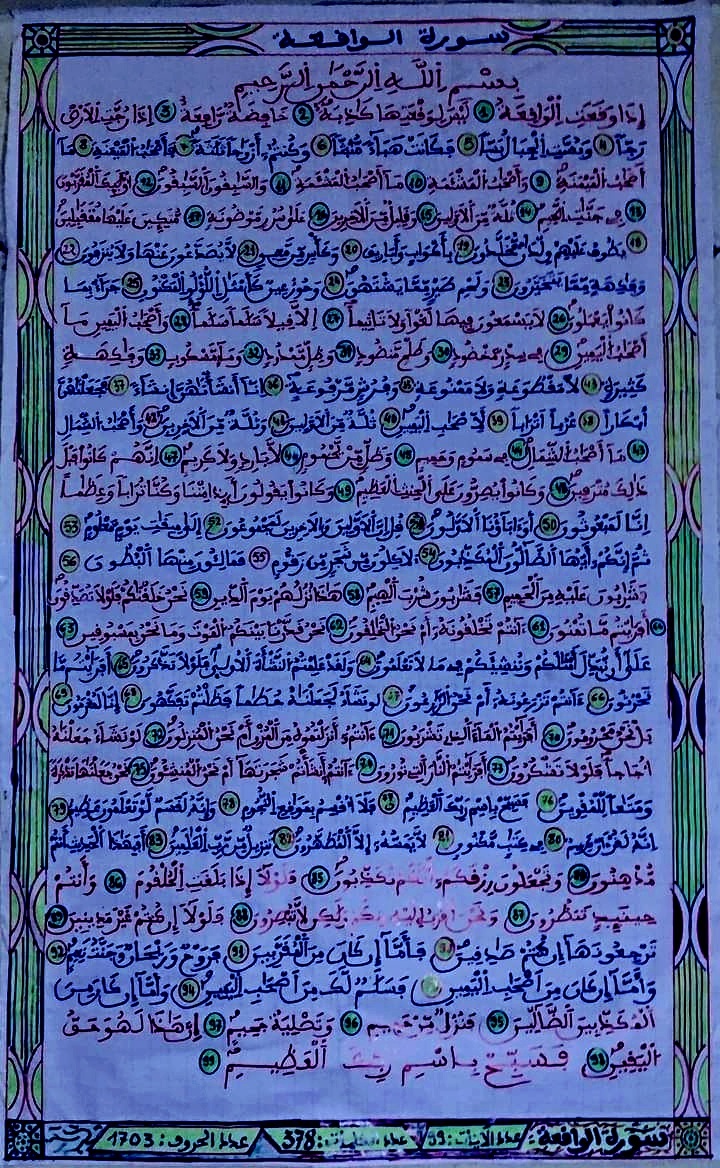 سورة الواقعة
بسم الله الرحمن الرحيم
إذا وقعت الواقعة 1 ليس لوقعتها كاذبة 2 خافضة رافعة 3 إذا رجت الأرض
رجا 4 وبست الجبال بسا 5 فكانت هباء منبثا 6 وكنتم أزواجا ثلثة 7 فأصحب الميمنة 8 ما
أصحب الميمنة 9 وأصحب المشئمة 10 ما أصحب المشئمة 11 والسبقون السبقون 12 أولئك المقربون
13 في جنت النعيم 14 ثلة من الأولين 15 وقليل من الأخرين 16 على سرر موضونة 17 متكئين عليها متقبلين
18 يطوف عليهم ولدن مخلدون 19 بأكواب وأباريق 20 وكأس من معين 21 لا يصدعون عنها ولا ينزفون 22
وفكهة مما يتخيرون 23 ولحم طير مما يشتهون 24 وحور عين كأمثل اللؤلؤ المكنون 25 جزاء بما
كانوا يعملون 26 لا يسمعون فيها لغوا ولا تأثيما 27 إلا قيلا سلما سلما 28 وأصحب اليمين ما
أصحب اليمين 29 في سدر مخضود 30 وطلح منضود 31 وظل ممدود 32 وماء مسكوب 33 وفكهة
كثيرة 34 لا مقطوعة ولا ممنوعة 35 وفرش مرفوعة 36 إنا أنشأنهن إنشاء 37 فجعلنهن
أبكارا 38 عربا أترابا 39 لأصحب اليمين 40 ثلة من الأولين 41 وثلة من الأخرين 42 وأصحب الشمال
43 ما أصحب الشمال 44 في سموم وحميم 45 وظل من يحموم 46 لا بارد ولا كريم 47 إنهم كانوا قبل
ذلك مترفين 48 وكانوا يصرون على الحنث العظيم 49 وكانوا يقولون أئذا متنا وكنا ترابا وعظما
إنا لمبعوثون 50 أو ءاباؤنا الأولون 51 قل إن الأولين والأخرين لمجموعون 52 إلى ميقت يوم معلوم 53
ثم إنكم أيها الضالون المكذبون 54 لأكلون من شجر من زقوم 55 فمالئون منها البطون 56
فشربون عليه من الحميم 57 فشربون شرب الهيم 58 هذا نزلهم يوم الدين 59 نحن خلقنكم فلولا تصدقون
60 أفرأيتم ما تمنون 61 ءأنتم تخلقونه أم نحن الخلقون 62 نحن قدرنا بينكم الموت وما نحن بمسبوقين 63
على أن نبدل أمثلكم وننشئكم في ما لا تعلمون 64 ولقد علمتم النشأة الأولى فلولا تذكرون 65 أفرأيتم ما
تحرثون 66 ءأنتم تزرعونه أم نحن الزرعون 67 لو نشاء لجعلنه حطما فظلتم تفكهون 68 إنا لمغرمون 69
بل نحن محرومون 70 أفرأيتم الماء الذي تشربون 71 ءأنتم أنزلتموه من المزن أم نحن المنزلون 72 لو نشاء جعلنه
أجاجا فلولا تشكرون 73 أفرأيتم النار التي تورون 74 ءأنتم أنشأتم شجرتها أم نحن المنشئون 75 نحن جعلنها تذكرة
ومتعا للمقوين 76 فسبح باسم ربك العظيم 77 فلا أقسم بموقع النجوم 78 وإنه لقسم لو تعلمون عظيم 79
إنه لقرءان كريم 80 في كتب مكنون 81 لا يمسه إلا المطهرون 82 تنزيل من رب العلمين 83 أفبهذا الحديث أنتم
مدهنون 84 وتجعلون رزقكم أنكم تكذبون 85 فلولا إذا بلغت الحلقوم 86 وأنتم
حينئذ تنظرون 87 ونحن أقرب إليه منكم ولكن لا تبصرون 88 فلولا إن كنتم غير مدينين 89
ترجعونها إن كنتم صدقين 90 فأما إن كان من المقربين 91 فروح وريحان وجنت نعيم 92
وأما إن كان من أصحب اليمين 93 فسلم لك من أصحب اليمين 94 وأما إن كان من
المكذبين الضالين 95 فنزل من حميم 96 وتصلية جحيم 97 إن هذا لهو حق
اليقين 98 فسبح باسم ربك العظيم 99
سورة الواقعة عدد الآيات: 99 عدد الكلمات: 378 عدد الحروف: 1703